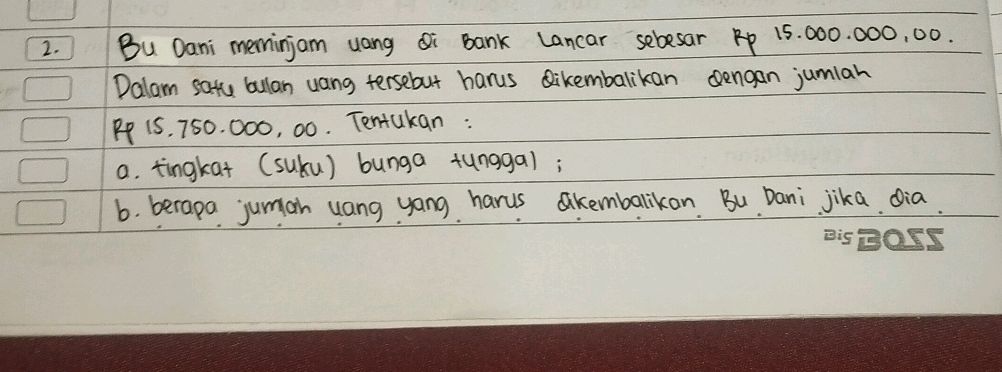 2. Bu Dani meminjam uang di Bank Lancar sebesar Rp 15.000.000,00.
Dalam satu bulan uang tersebut harus dikembalikan dengan jumlah
Rp 15.750.000,00. Tentukan :
a. tingkat (suku) bunga tunggal ;
b. berapa jumlah uang yang harus dikembalikan Bu Dani jika dia
Big BOSS